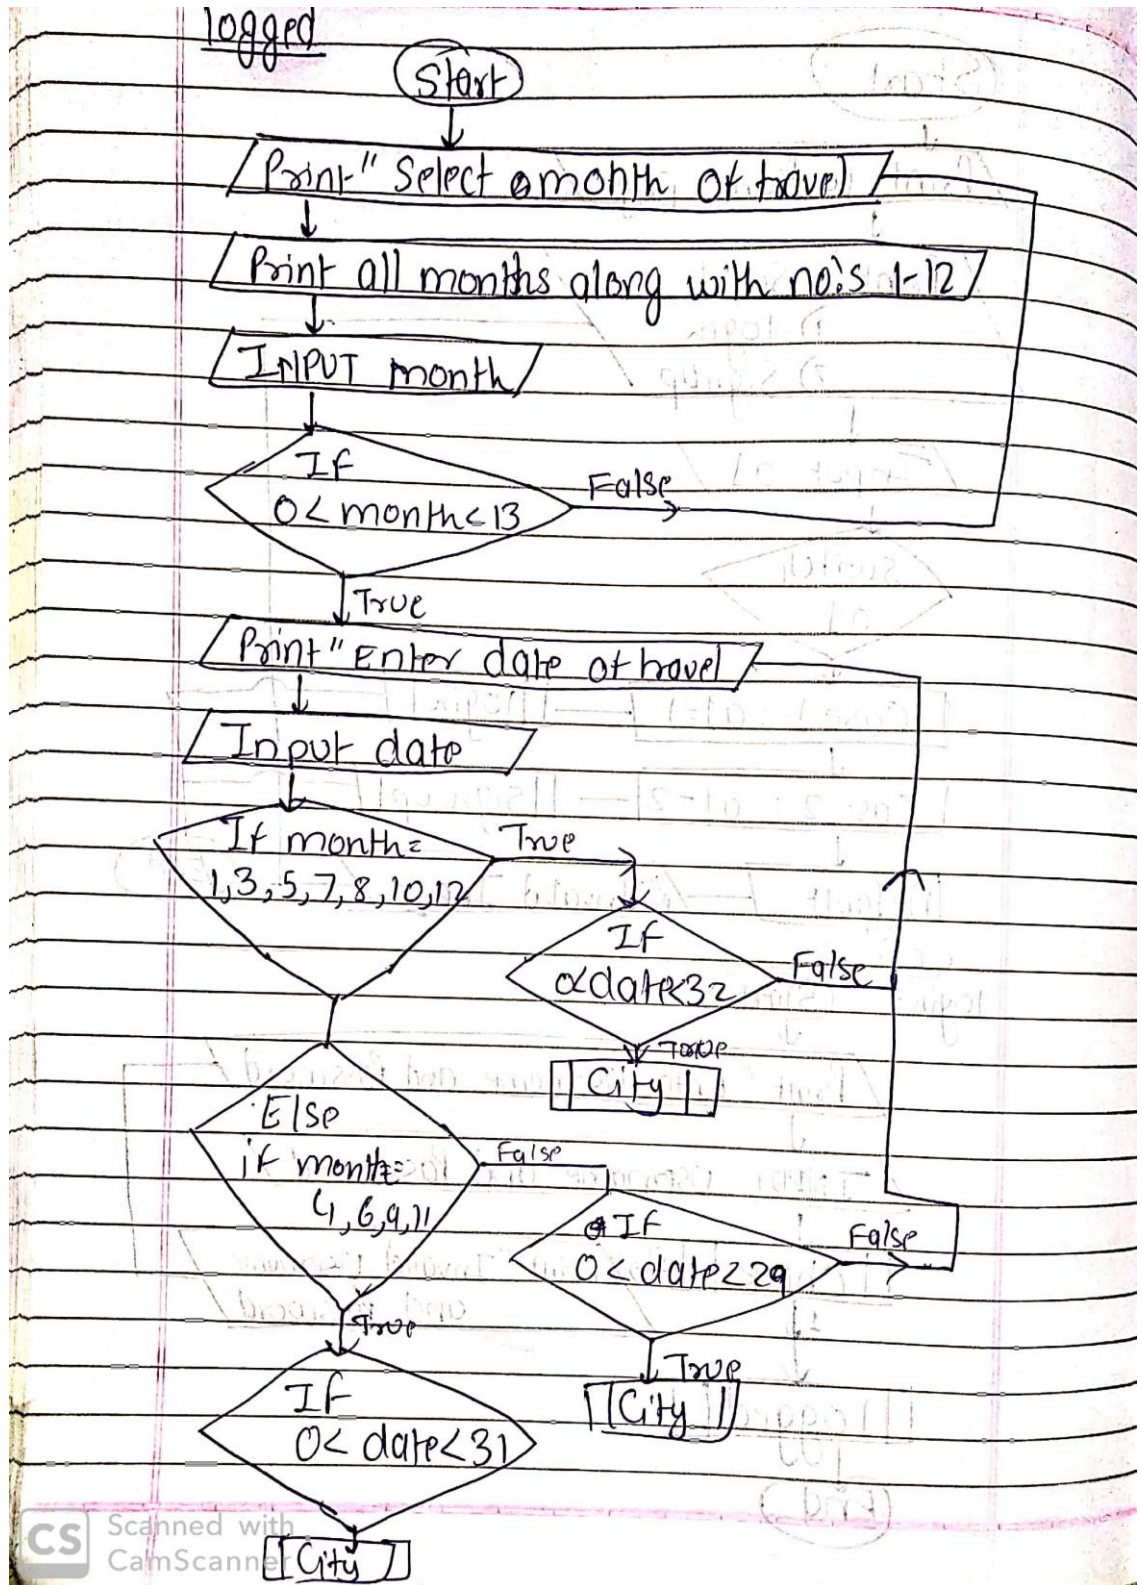 logged
Start
Print " Select a month of travel
Print all months along with no.s 1-12
INPUT month
If
0 < month < 13
False
True
Print " Enter date of travel
Input date
If month =
1, 3, 5, 7, 8, 10, 12
True
If
0<date<32
False
True
City
Else
if month=
4, 6, 9, 11
False
If
0 < date < 29
False
True
True
City
If
0 < date < 31
City
CS
Scanned with
CamScanner